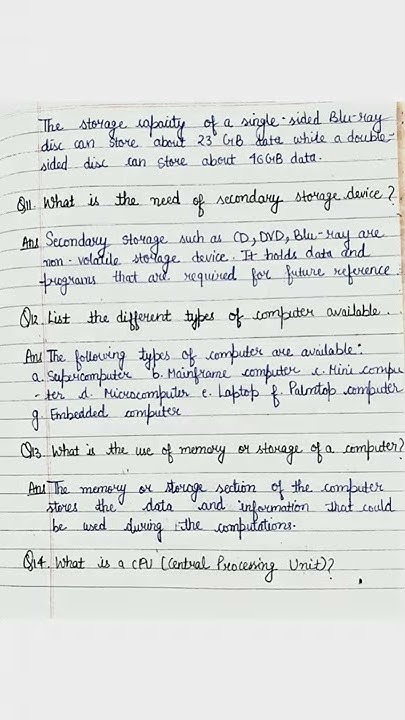 The storage capacity of a single-sided Blu-ray
disc can store about 23 GB data while a double-
sided disc can store about 46GB data.
Q11. What is the need of secondary storage device?
Ans Secondary storage such as CD, DVD, Blu-ray are
non-volatile storage device. It holds data and
programs that are required for future reference
Q12. List the different types of computer available.
Ans The following types of computer are available:
a. Supercomputer b. Mainframe computer c. Mini compu
-ter d. Microcomputer e. Laptop f. Palmtop computer
g. Embedded computer
Q13. What is the use of memory or storage of a computer?
Ans The memory or storage section of the computer
stores the data and information that could
be used during the computations.
Q14. What is a CPU (Central Processing Unit)?